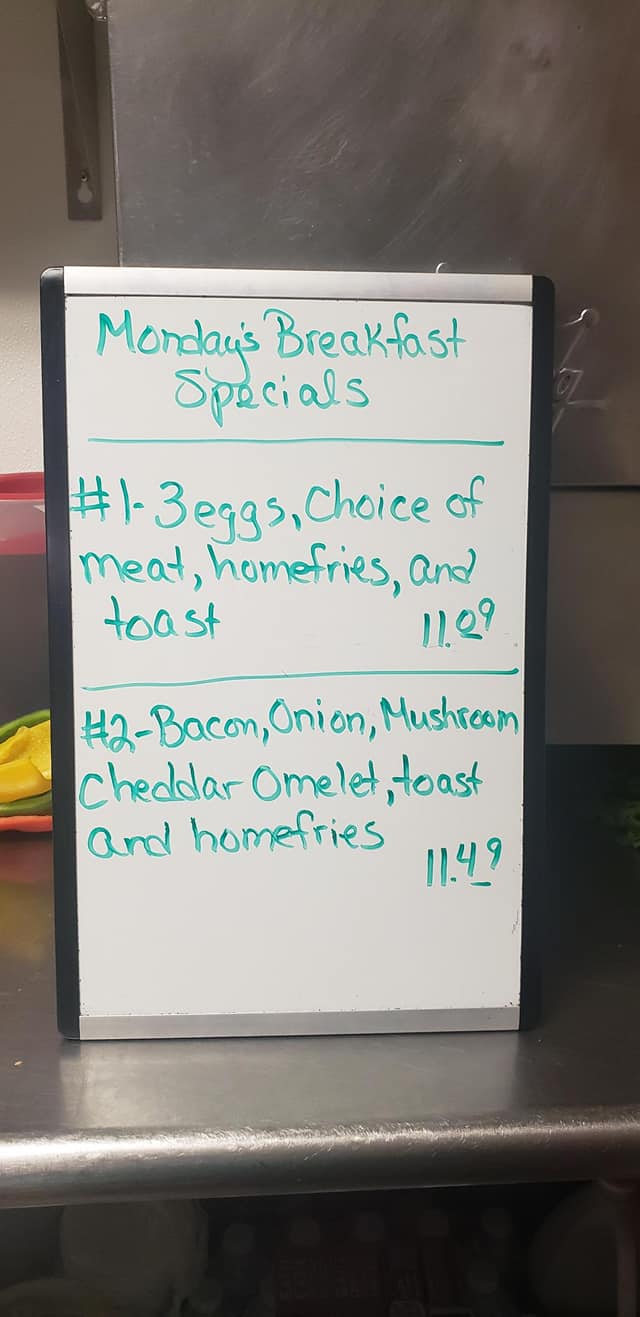 Monday's Breakfast
Specials
#1- 3 eggs, Choice of
meat, homefries, and
toast 11.09
#2-Bacon, Onion, Mushroom
Cheddar Omelet, toast
and homefries
11.49